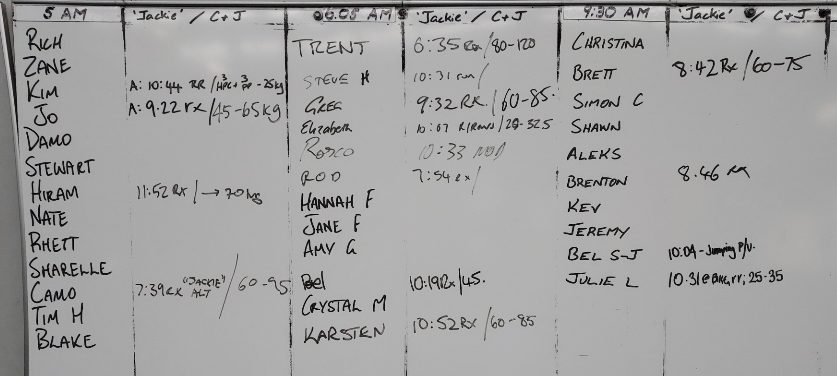 5 AM 'Jackie' / C+J
RICH
ZANE
KIM A: 10:44 RR / 3 HPC + 3 PP - 25kg
JO A: 9:22 rx / 45-65kg
DAMO
STEWART
HIRAM 11:52 RX / → 70 kg
NATE
RHETT
SHARELLE
CAMO 7:39 RX "JACKIE" ALT / 60-95
TIM H
BLAKE
06:05 AM 'Jackie' / C+J
TRENT 6:35 Rx / 80-120
STEVE H 10:31 /
GREG 9:32 RX / 60-85
Elizabeth 10:07 / 32.5
ROSCO 10:33 MOD
ROD 7:54 rx /
HANNAH F
JANE F
AMY G
Bel 10:19 Rx / 45.
CRYSTAL M
KARSTEN 10:52 RX / 60-85
9:30 AM 'Jackie' / C+J
CHRISTINA
BRETT 8:42 Rx / 60-75
SIMON C
SHAWN
ALEKS
BRENTON 8.46 rx
KEV
JEREMY
BEL S-J 10:04 - Jumping P/U.
JULIE L 10.31 @ rr, 25-35